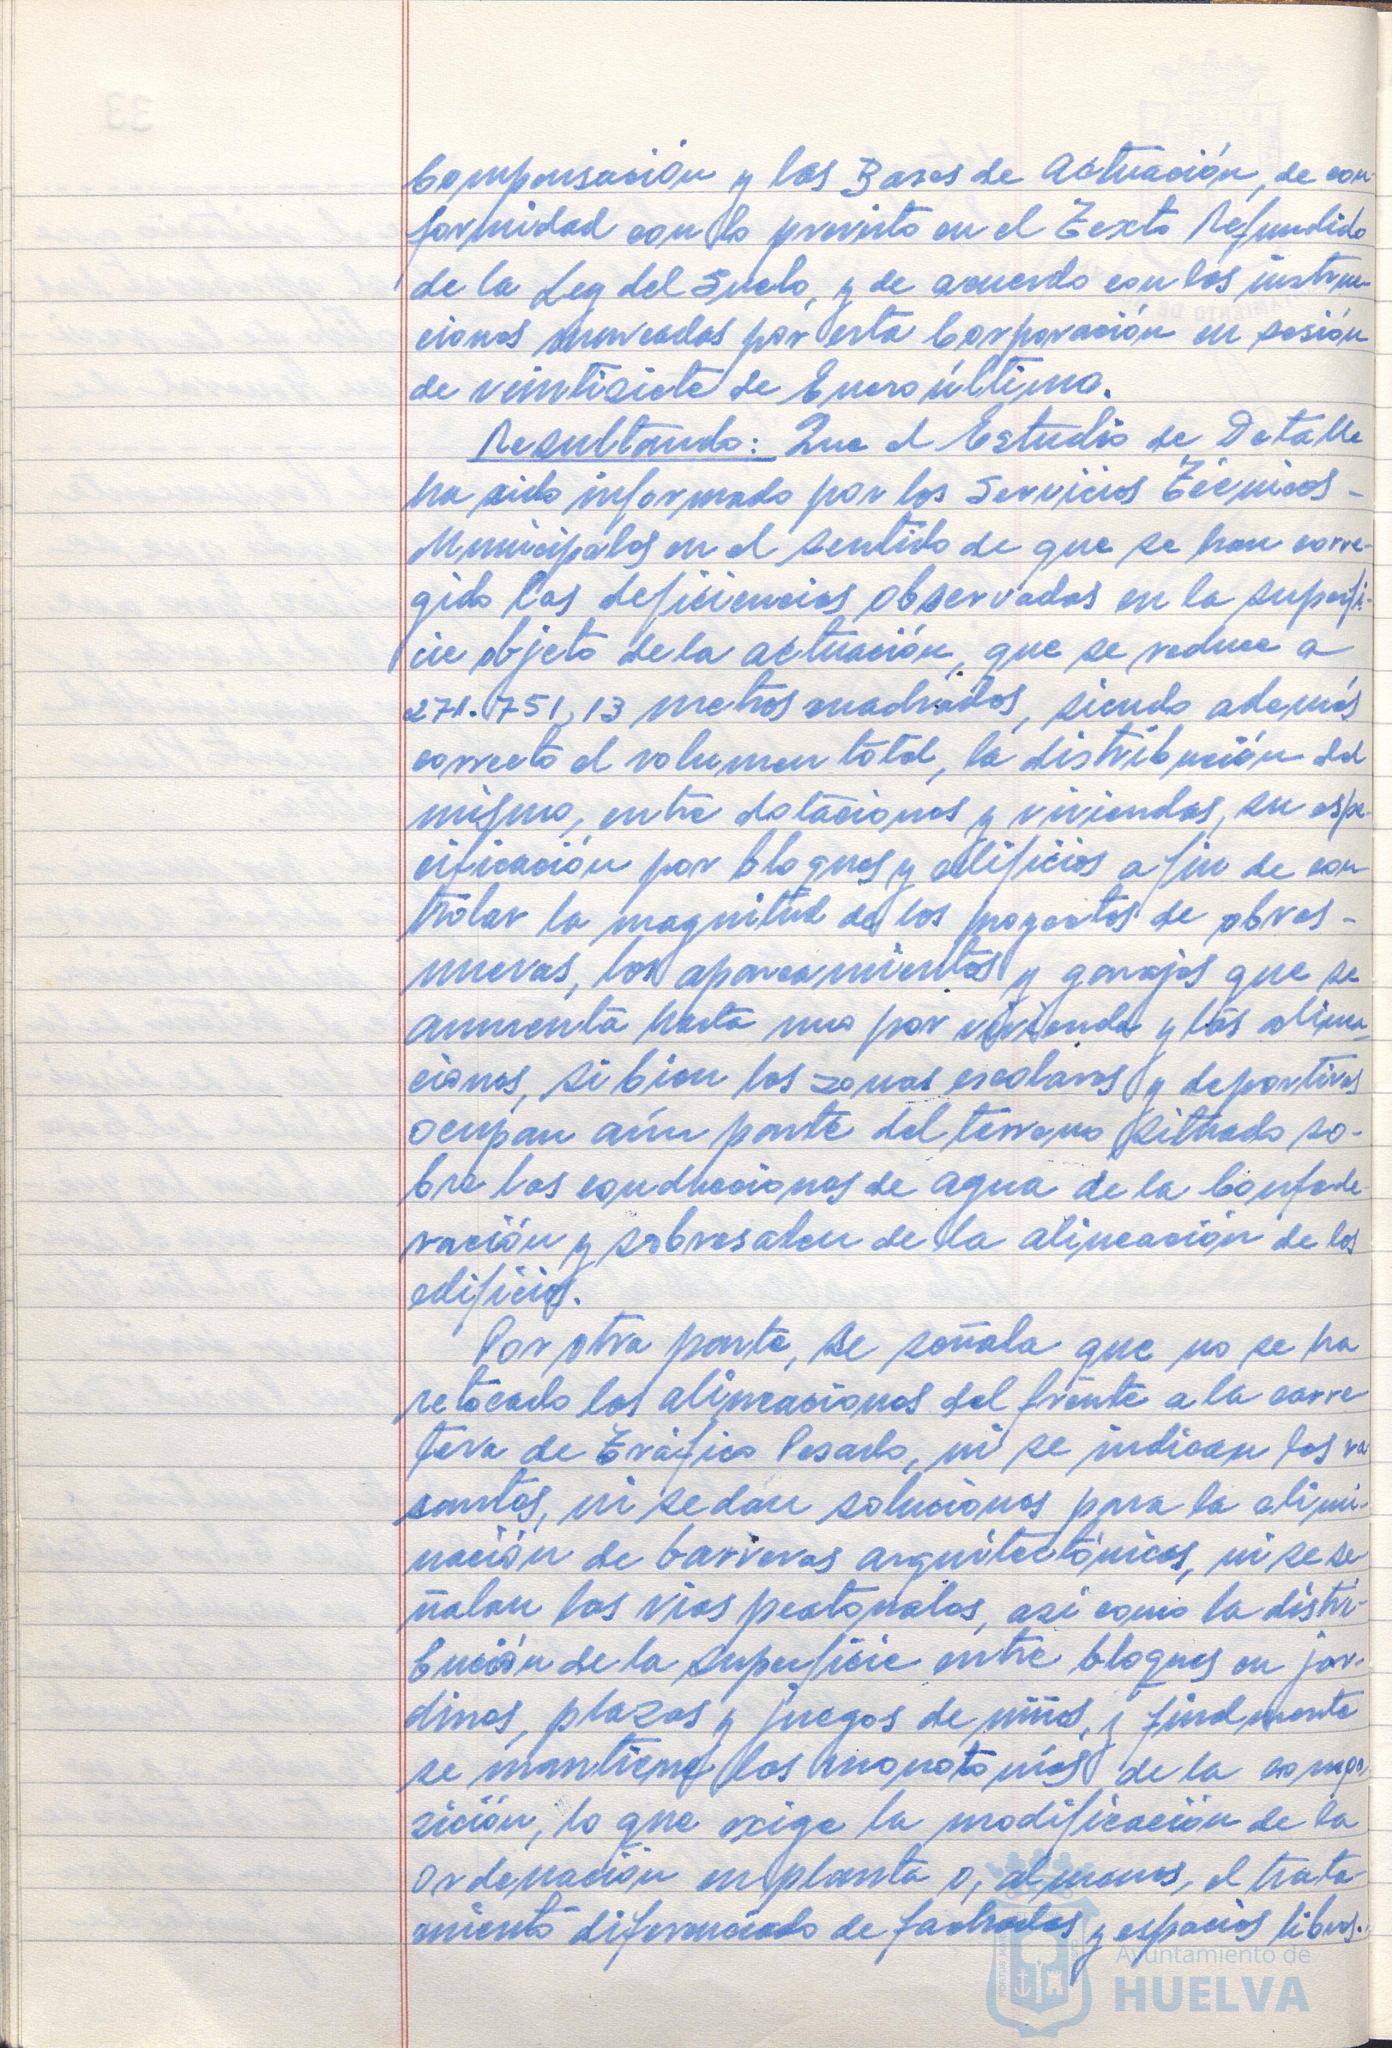 Compensación y las Bases de Actuación, de con-
formidad con lo previsto en el Texto Refundido
de la Ley del Suelo, y de acuerdo con las instruc-
ciones marcadas por esta Corporación en sesión
de veintisiete de Enero último.
Resultando: Que el Estudio de Detalle
ha sido informado por los Servicios Técnicos-
Municipales en el sentido de que se han corre-
gido las deficiencias observadas en la superfi-
cie objeto de la actuación, que se reduce a
271.751,13 metros cuadrados, siendo además
correcto el volumen total, la distribución del
mismo, entre dotaciones y viviendas, su espe-
cificación por bloques y edificios a fin de con
trolar la magnitud de los proyectos de obras-
nuevas, los aparcamientos y garajes que se
aumenta hasta uno por vivienda y las alinea-
ciones, si bien las zonas escolares y deportivas
ocupan aún parte del terreno situado so-
bre las conducciones de agua de la Confede-
ración y sobresalen de la alineación de los
edificios.
Por otra parte, se señala que no se ha
retocado las alineaciones del frente a la carre
tera de Tráfico Pesado, ni se indican las ra
santes, ni se dan soluciones para la elimi-
nación de barreras arquitectónicas, ni se se
ñalan las vías peatonales, así como la distri-
bución de la superficie entre bloques en jar-
dines, plazas y juegos de niños, y finalmente
se mantiene las monotonías de la compo
sición, lo que exige la modificación de la
ordenación en planta o, al menos, el trata-
miento diferenciado de fachadas y espacios libres.
Ayuntamiento de
HUELVA